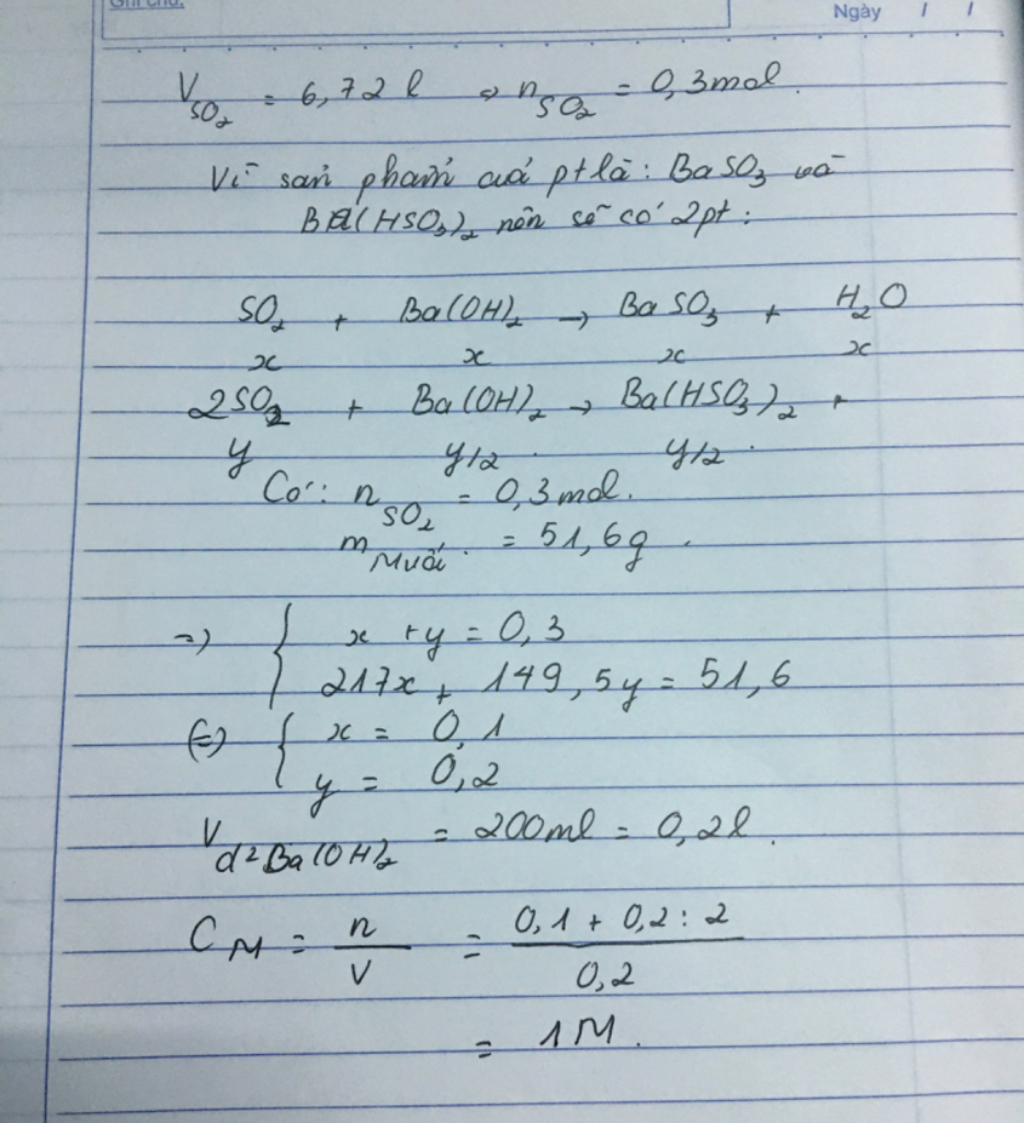 Ghi chú:
Ngày / /
V_SO₂ = 6,72 l => n_SO₂ = 0,3mol.
Vì sản phẩm của pt là: BaSO₃ và
Ba(HSO₃)₂ nên sẽ có 2pt:
SO₂ + Ba(OH)₂ → BaSO₃ + H₂O
x x x x
2SO₂ + Ba(OH)₂ → Ba(HSO₃)₂ +
y y/2 y/2
Có: n_SO₂ = 0,3mol.
m_Muối = 51,6g.
=> { x + y = 0,3
217x + 149,5y = 51,6
(=) { x = 0,1
y = 0,2
V_d² Ba(OH)₂ = 200ml = 0,2l.
C_M = n/V = (0,1 + 0,2 : 2)/0,2
= 1M.